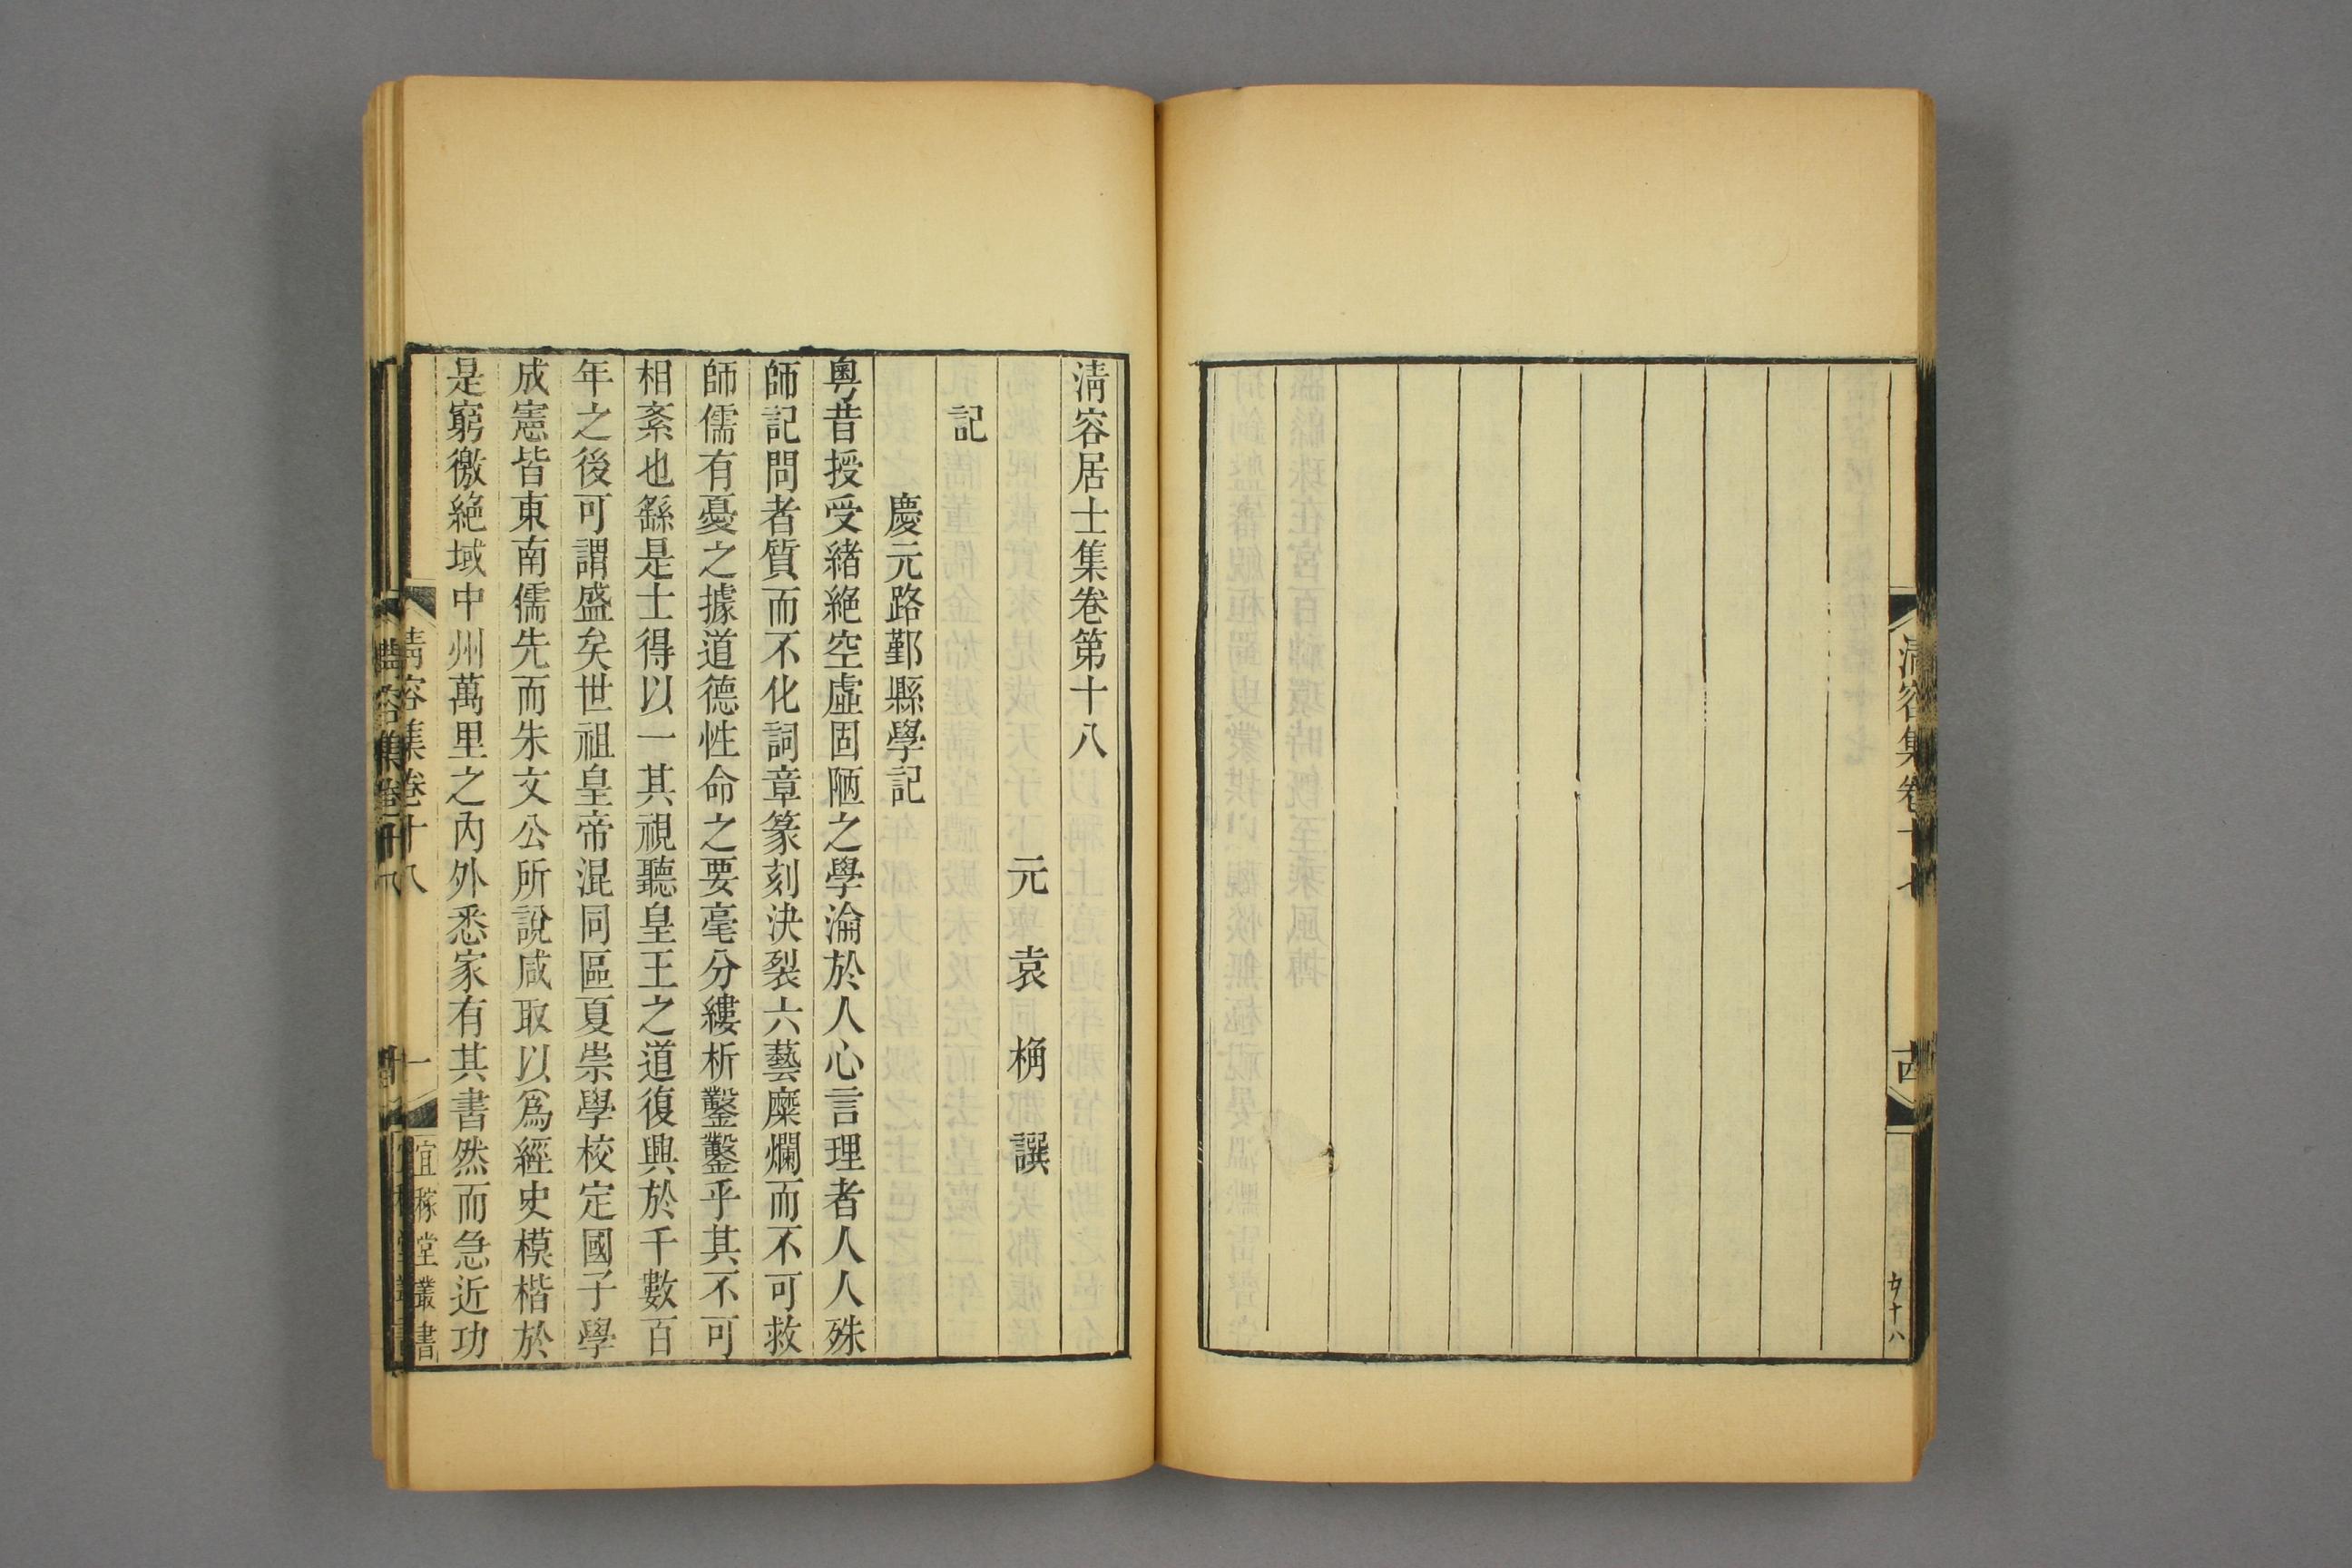 清容集卷十七
十四
清容居士集卷第十八
元袁桷譔
記
慶元路鄞縣學記
粵昔授受緒絕空虛固陋之學淪於人心言理者人人殊
師記問者質而不化詞章篆刻決裂六藝糜爛而不可救
師儒有憂之據道德性命之要毫分縷析鑿鑿乎其不可
相紊也繇是士得以一其視聽皇王之道復興於千數百
年之後可謂盛矣世祖皇帝混同區夏崇學校定國子學
成憲皆東南儒先而朱文公所說咸取以為經史模楷於
是窮徼絕域中州萬里之內外悉家有其書然而急近功
清容集卷十八
一
宜稼堂叢書